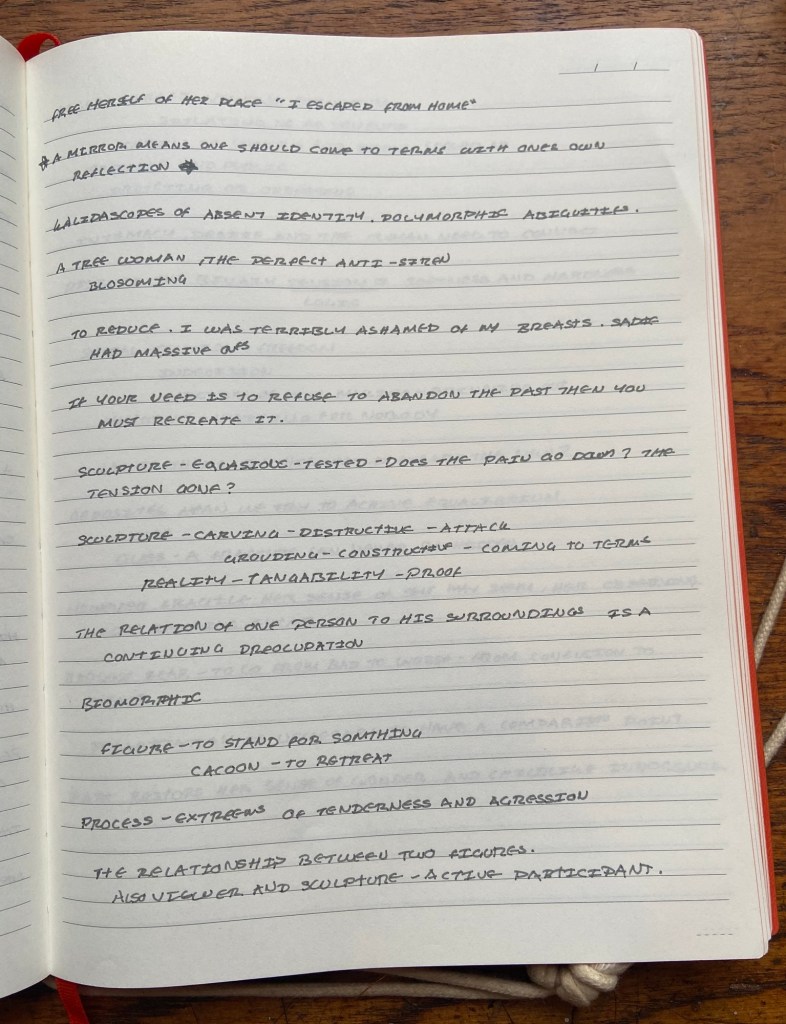 FREE HERSELF OF HER PLACE "I ESCAPED FROM HOME"
* A MIRROR MEANS ONE SHOULD COME TO TERMS WITH ONES OWN
REFLECTION *
KALIDASCOPES OF ABSENT IDENTITY. POLYMORPHIC ABIGUITIES.
A TREE WOMAN / THE PERFECT ANTI-SIREN
BLOSOMING
TO REDUCE. I WAS TERRIBLY ASHAMED OF MY BREASTS. SADIE
HAD MASSIVE ONES
IF YOUR NEED IS TO REFUSE TO ABANDON THE PAST THEN YOU
MUST RECREATE IT.
SCULPTURE - EQUASIONS - TESTED - DOES THE PAIN GO DOWN? THE
TENSION GONE?
SCULPTURE - CARVING - DISTRUCTIVE - ATTACK
GROUDING - CONSTRUCTIVE - COMING TO TERMS
REALITY - TANGABILITY - PROOF
THE RELATION OF ONE PERSON TO HIS SURROUNDINGS IS A
CONTINUING PREOCUPATION
BIOMORPHIC
FIGURE - TO STAND FOR SOMTHING
CACOON - TO RETREAT
PROCESS - EXTREEMS OF TENDERNESS AND AGRESSION
THE RELATIONSHIP BETWEEN TWO FIGURES.
ALSO VIEWER AND SCULPTURE - ACTIVE PARTICIPANT.